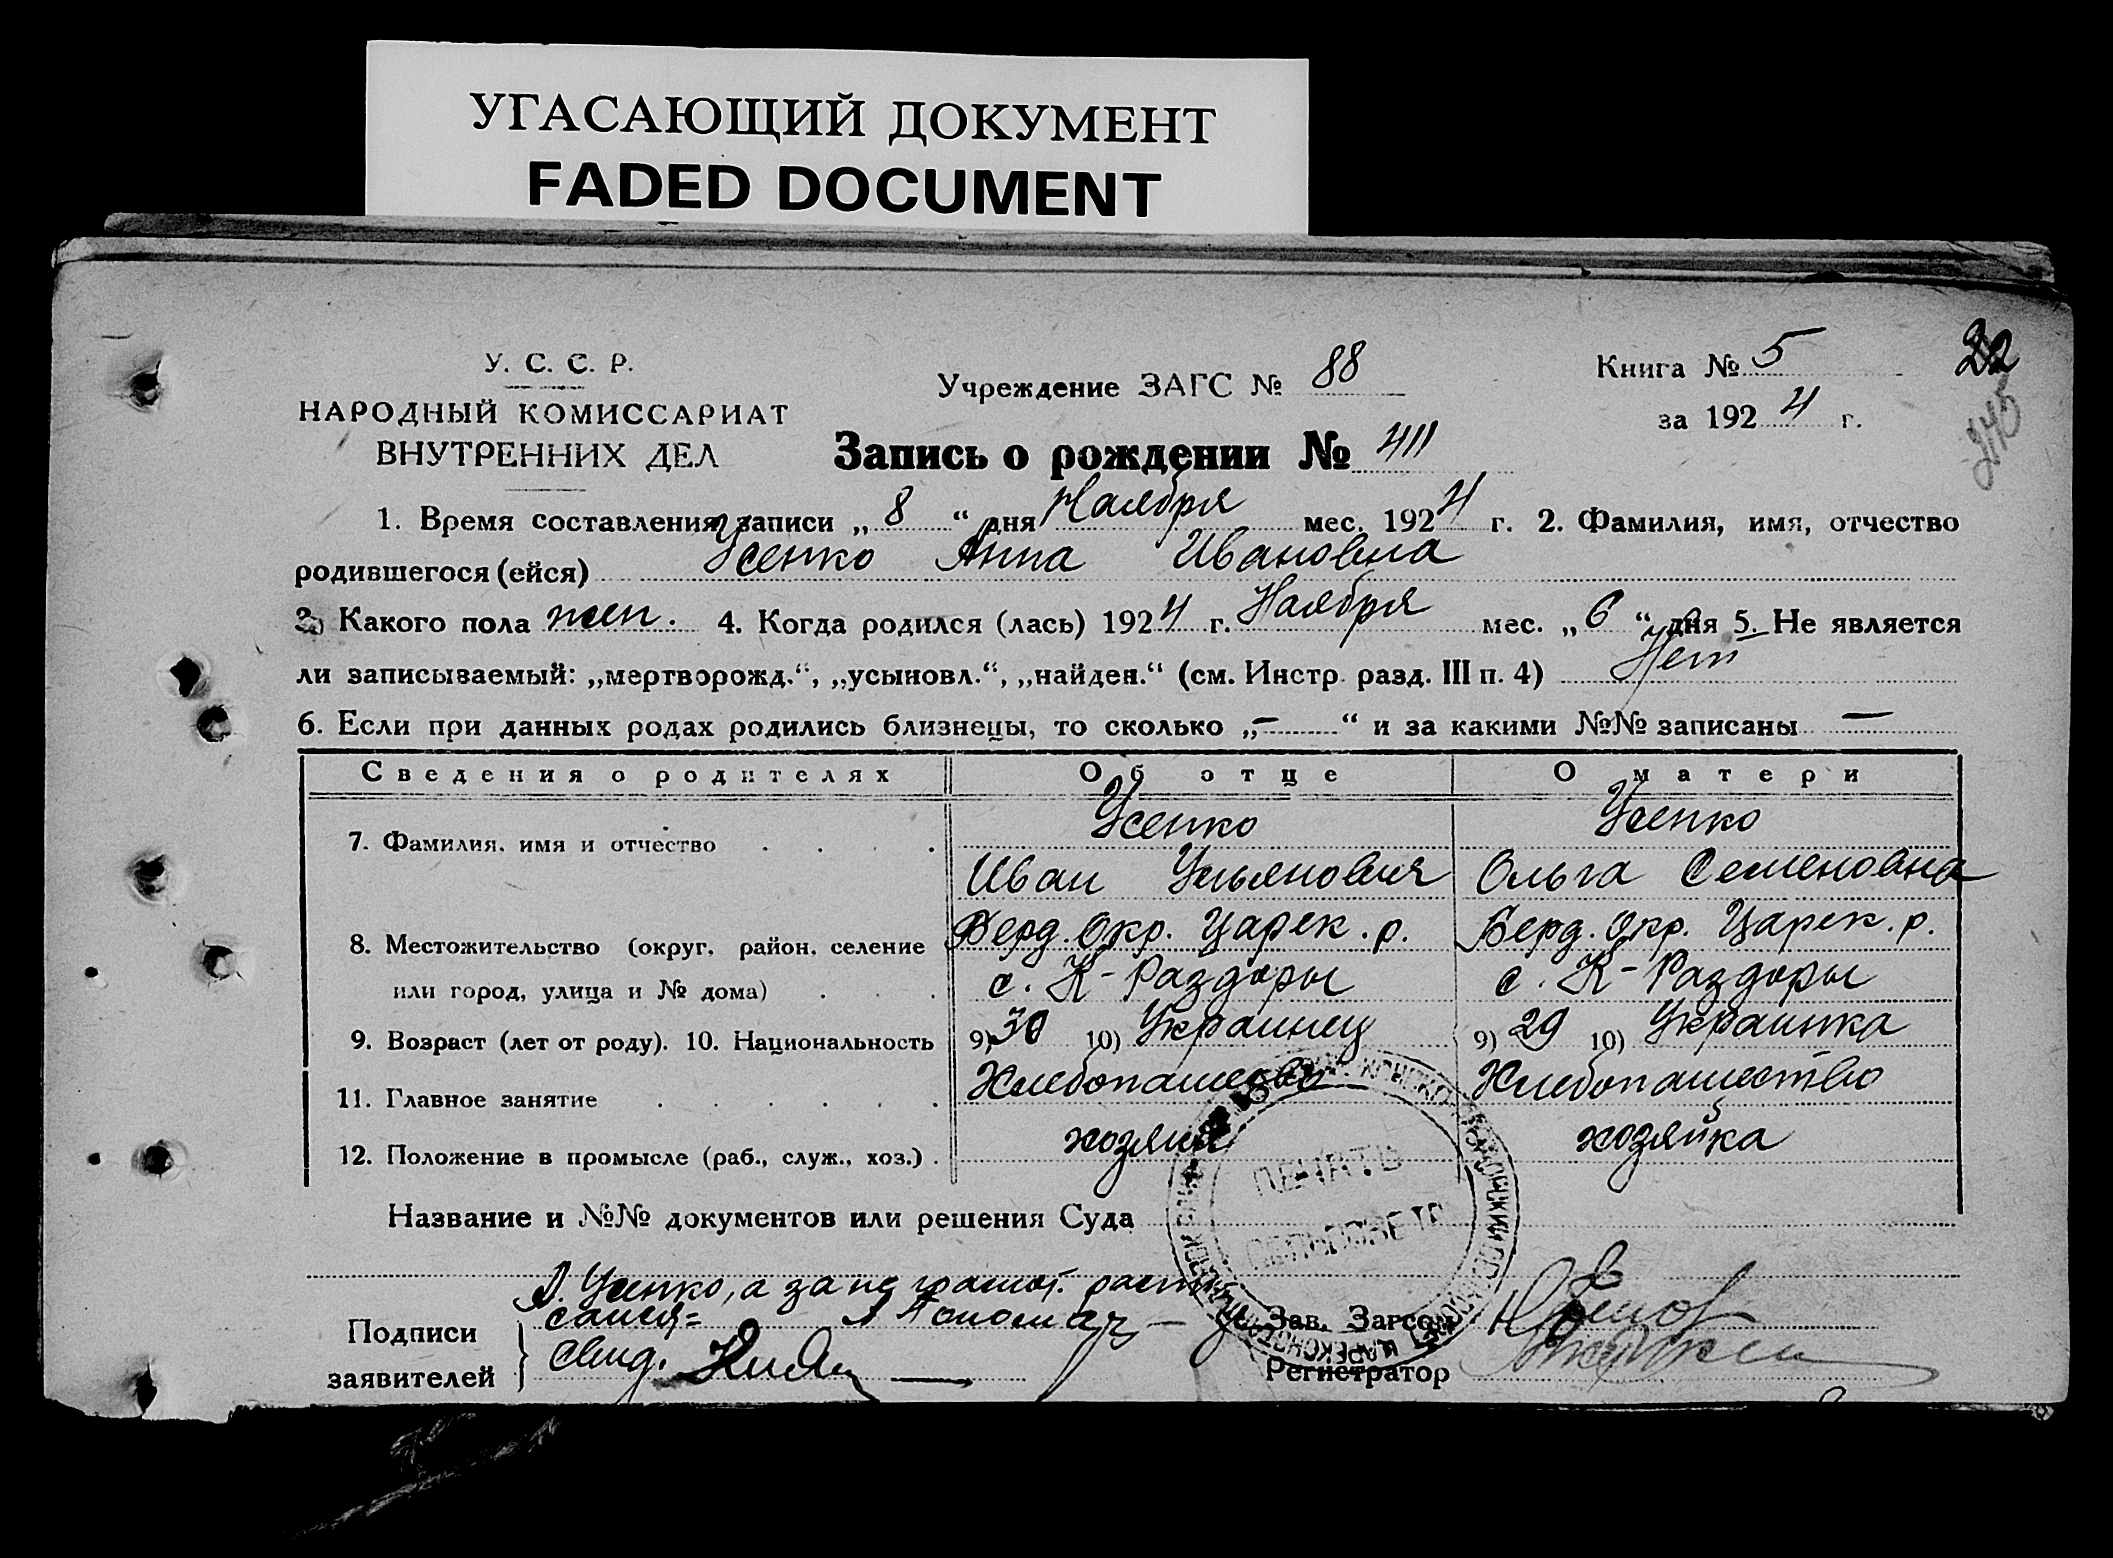 УГАСАЮЩИЙ ДОКУМЕНТ
FADED DOCUMENT
У. С. С. Р.
НАРОДНЫЙ КОМИССАРИАТ
ВНУТРЕННИХ ДЕЛ
Учреждение ЗАГС № 88
Книга № 5
22
за 1924 г.
Запись о рождении № 411
1. Время составления записи „8“ дня Наября мес. 1924 г. 2. Фамилия, имя, отчество
родившегося (ейся) Усенко Анна Ивановна
3. Какого пола жен. 4. Когда родился (лась) 1924 г. Наября мес. „6“ дня 5. Не является
ли записываемый: „мертворожд.“, „усыновл.“, „найден.“ (см. Инстр. разд. III п. 4) Нет
6. Если при данных родах родились близнецы, то сколько „—“ и за какими №№ записаны —
Сведения о родителях Об отце О матери
7. Фамилия, имя и отчество Усенко Усенко
Иван Ульяновия Ольга Семеновна
8. Местожительство (округ, район, селение Берд. Окр. Царек. р. Берд. Окр. Царек. р.
или город, улица и № дома) с. К-Раздоры с. К-Раздоры
9. Возраст (лет от роду). 10. Национальность 9) 30 10) Украинец 9) 29 10) Украинка
11. Главное занятие Хлебопашество Хлебопашество
12. Положение в промысле (раб., служ., хоз.) хозяин хозяйка
Название и №№ документов или решения Суда
ПЕЧАТЬ
СЕЛЬСОВЕТА
Усенко, а за неграмот.
Подписи
заявителей
свид.
Зав. Загсом
Регистратор